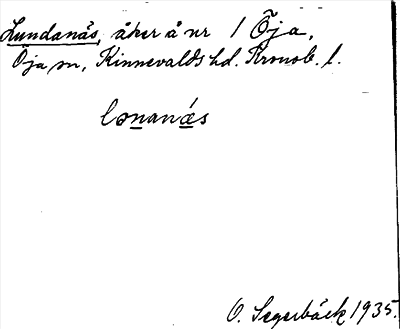 Lundanäs, åker å nr 1 Öja,
Öja sn, Kinnevalds hd. Kronob. l.
lonanás
O. Segerbäck 1935.